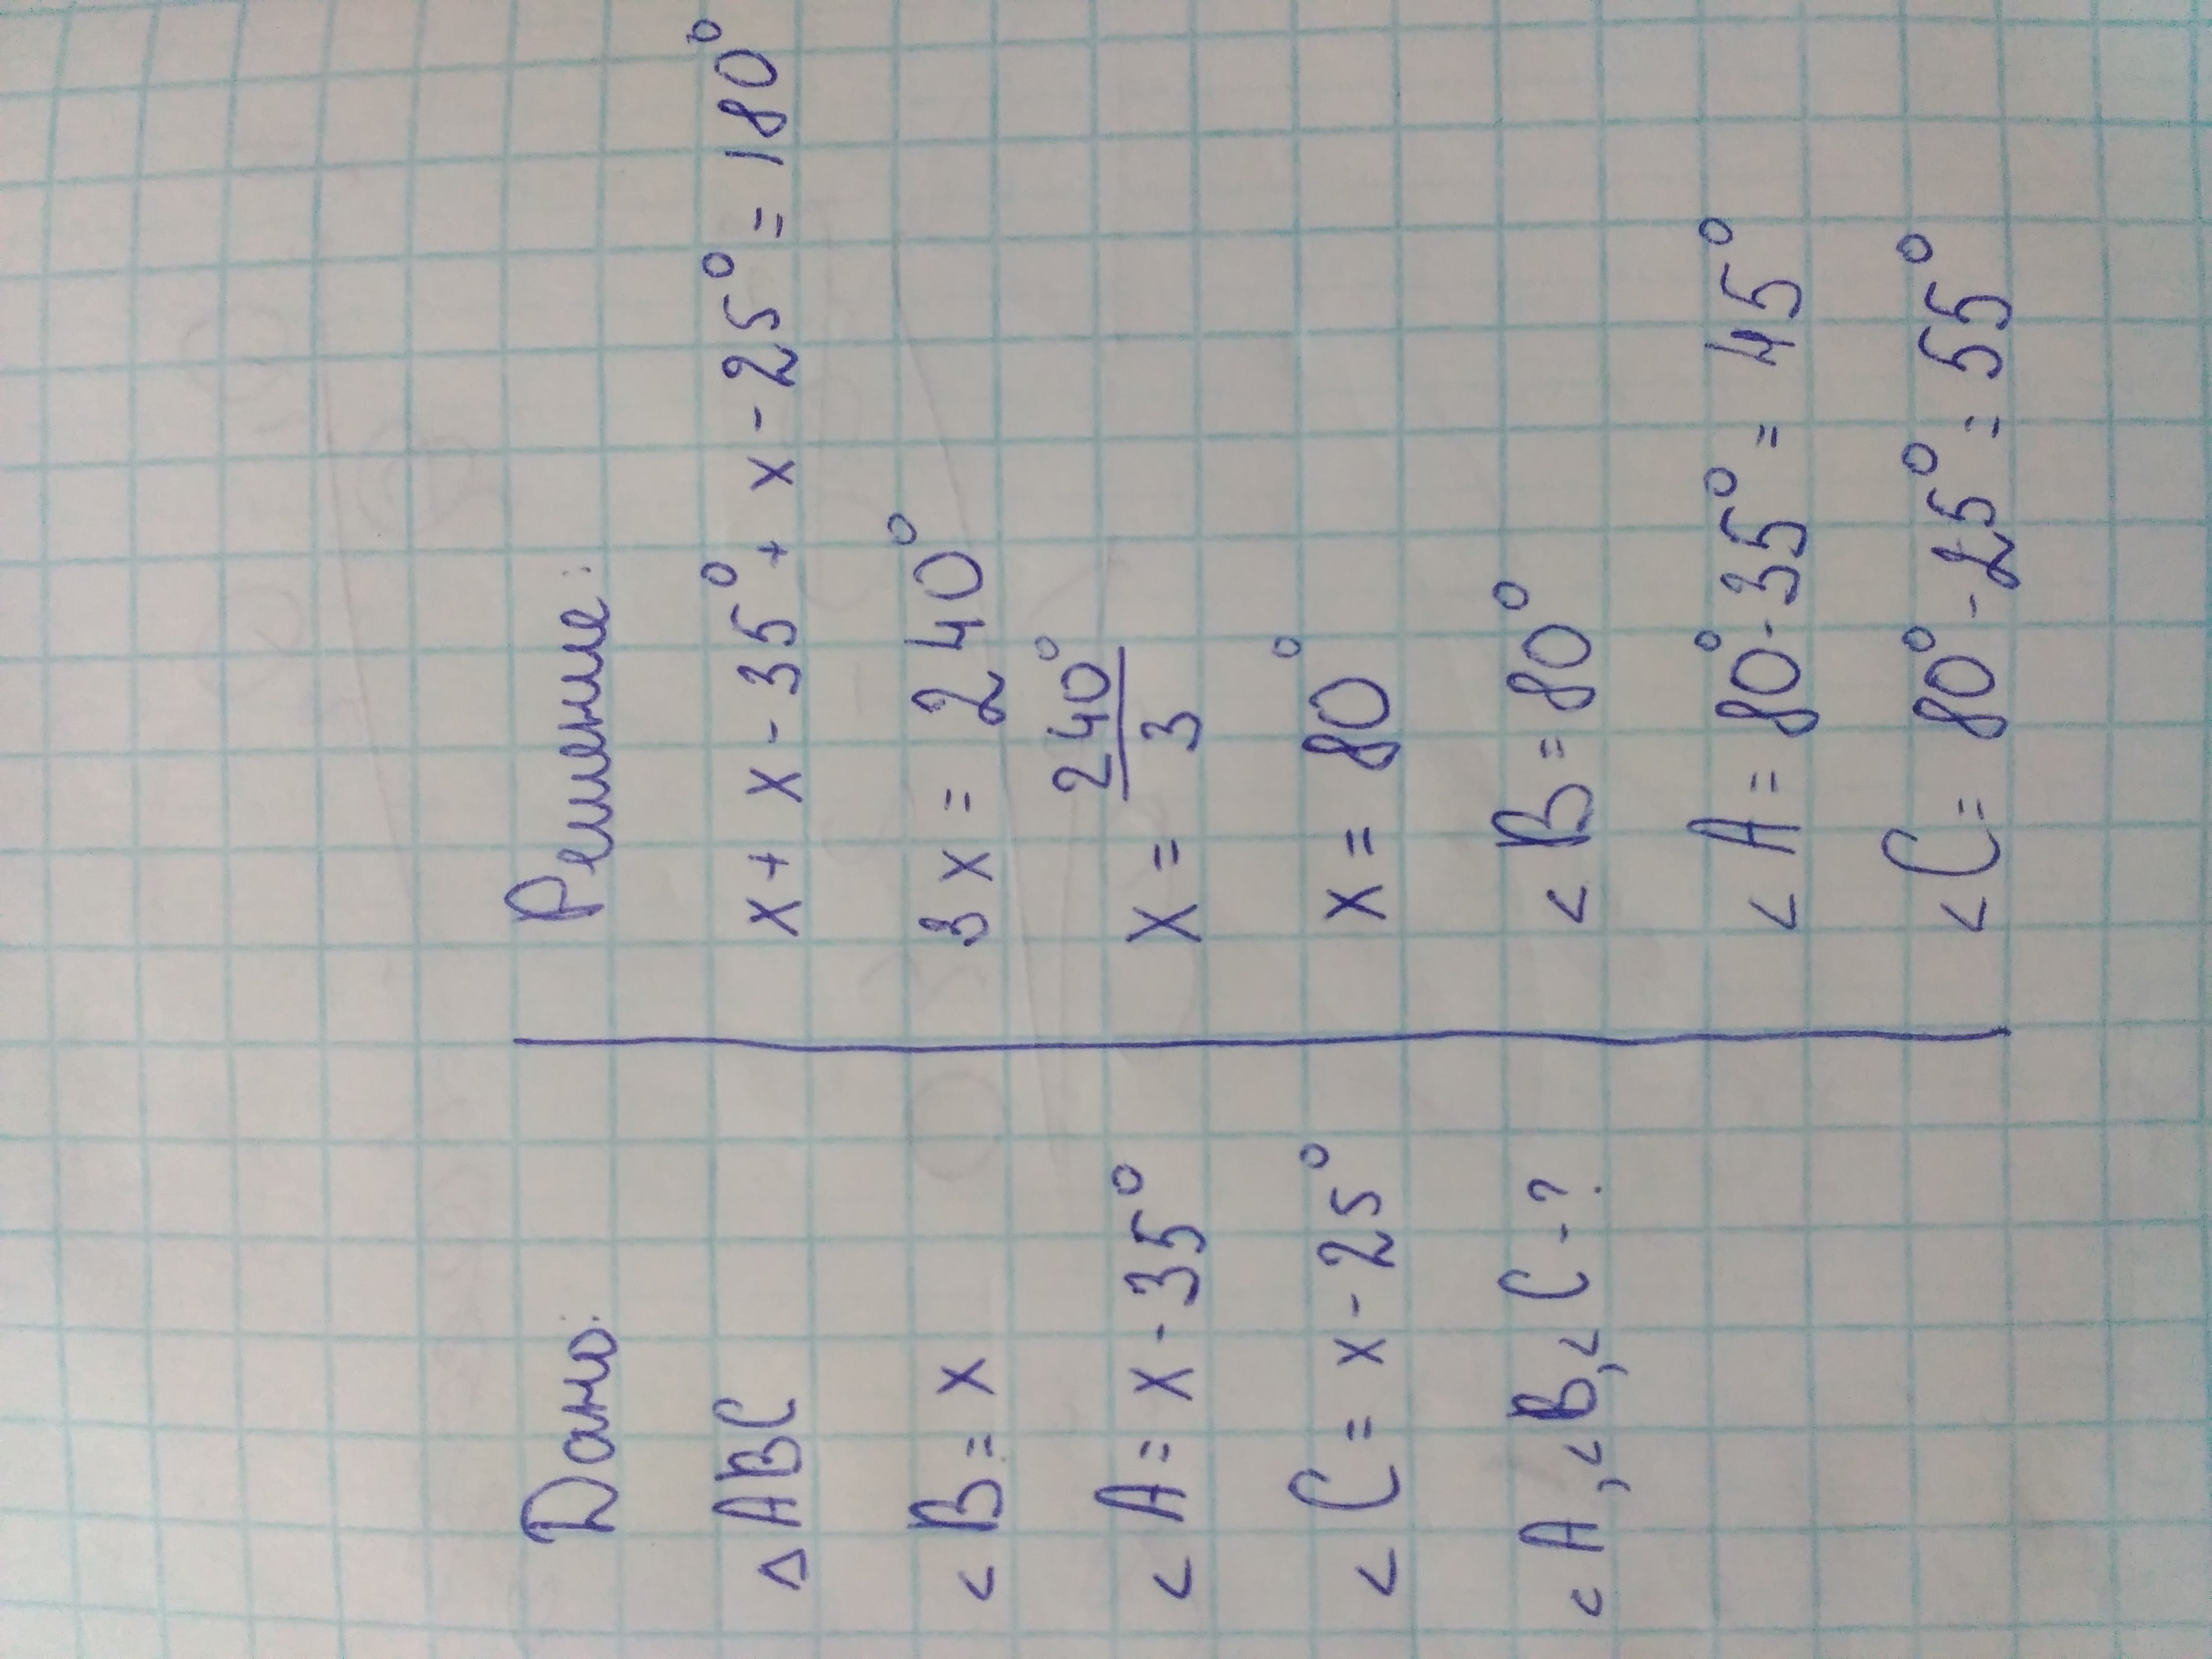 Дано:
△ABC
<B = x
<A = x - 35°
<C = x - 25°
<A, <B, <C - ?
Решение:
x + x - 35° + x - 25° = 180°
3x = 240°
x = 240°/3
x = 80°
<B = 80°
<A = 80° - 35° = 45°
<C = 80° - 25° = 55°